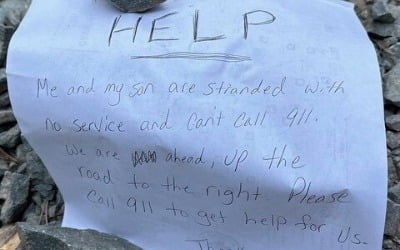 HELP
Me and my son are stranded with
no service and can't call 911.
We are ahead, up the
road to the right. Please
Call 911 to get help for us.